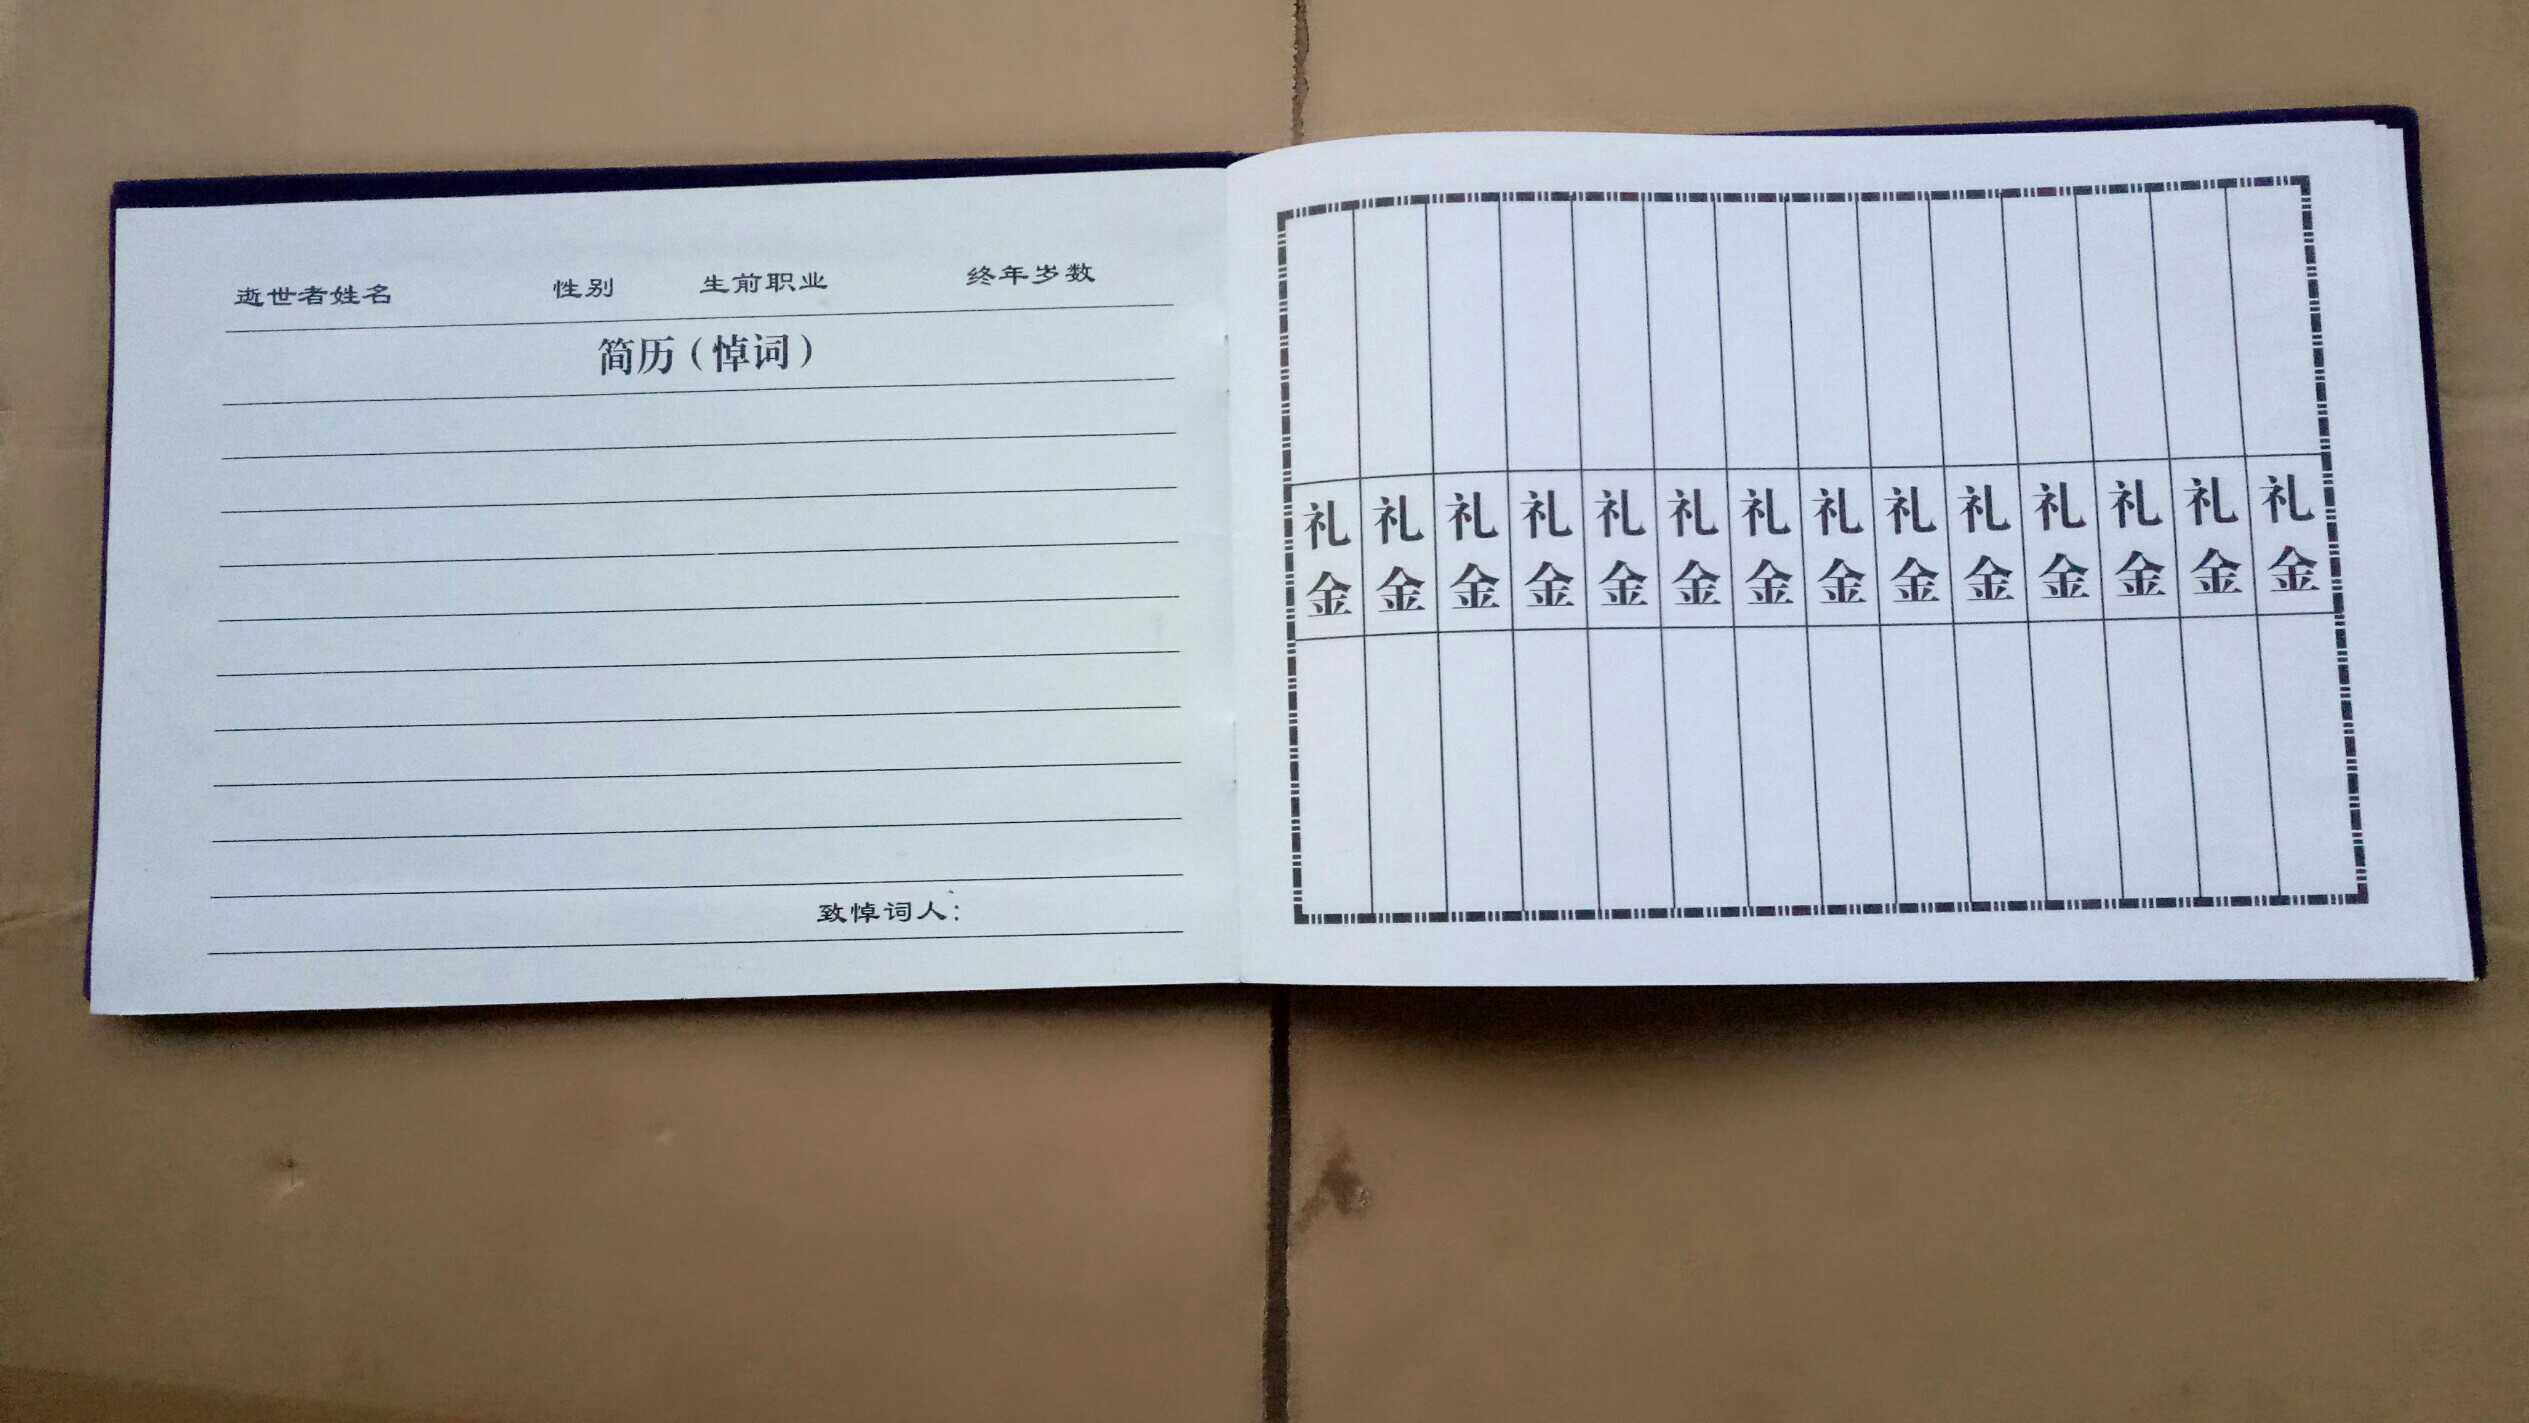 逝世者姓名 性别 生前职业 终年岁数
简历(悼词)
致悼词人:
礼金 礼金 礼金 礼金 礼金 礼金 礼金 礼金 礼金 礼金 礼金 礼金 礼金 礼金